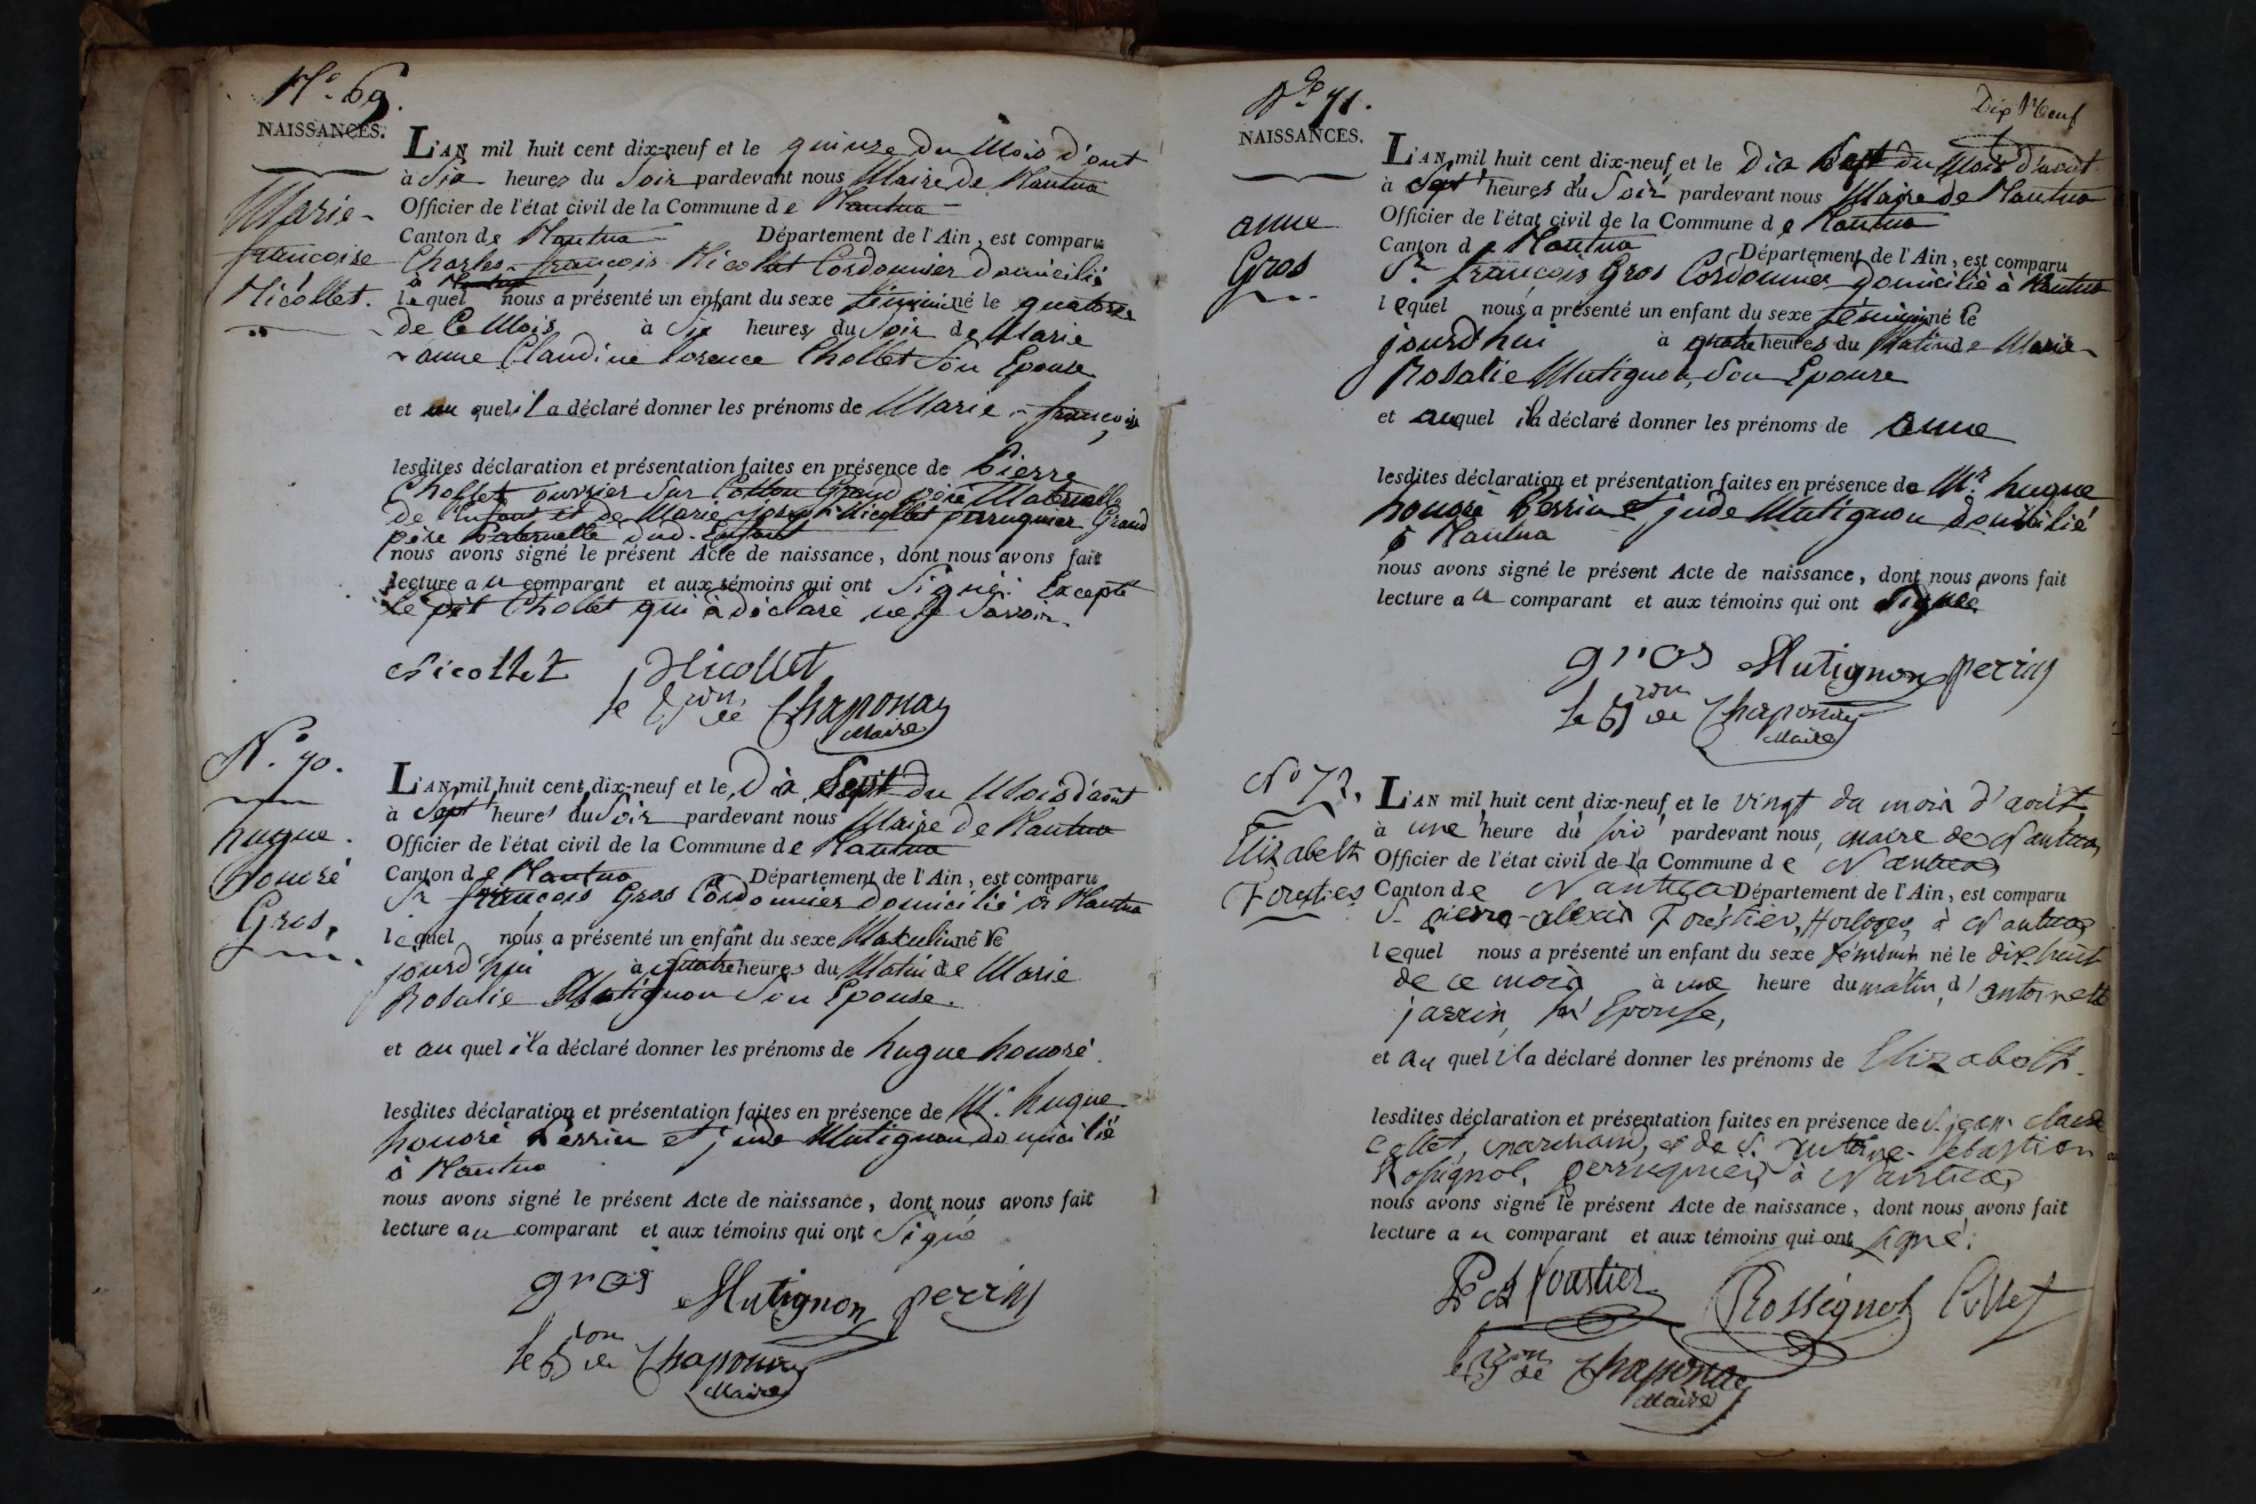 N.o 69.
NAISSANCES.
Marie-
francoise
Nicollet.
L'AN mil huit cent dix-neuf et le quinze du Mois d'out
à Six heures du Soir pardevant nous Maire De Nantua
Officier de l'état civil de la Commune de Nantua
Canton de Nantua Département de l'Ain, est comparu
Charles-francois Nicollet Cordonnier domicilié
à Nantua
lequel nous a présenté un enfant du sexe féminin né le quatorze
de Ce Mois à Six heures du Soir de Marie
anne Claudine Chollet Son Epouse
et au quel il a déclaré donner les prénoms de Marie-francoise
lesdites déclaration et présentation faites en présence de Pierre
Chollet ouvrier Sur Cotton Grand père Maternelle
de l'Enfant et de Marie joseph Nicollet perruquier Grand
père Paternelle dud. Enfant
nous avons signé le présent Acte de naissance, dont nous avons fait
lecture au comparant et aux témoins qui ont Signé. Excepté
Le dit Chollet qui à déclaré ne le Savoir.
Nicollet Nicollet
le Bron de Chaponay
Maire
N.o 70.
hugue.
honoré
Gros.
L'AN mil huit cent dix-neuf et le Dix Sept du Mois d'août
à Sept heures du Soir pardevant nous Maire De Nantua
Officier de l'état civil de la Commune de Nantua
Canton de Nantua Département de l'Ain, est comparu
Sr francois Gros Cordonnier Domicilié à Nantua
lequel nous a présenté un enfant du sexe Masculin né le
jourd'hui à quatre heures du Matin de Marie
Rosalie Mutignon Son Epouse.
et au quel il a déclaré donner les prénoms de hugue honoré.
lesdites déclaration et présentation faites en présence de Mr. hugue
honoré Perrin et jude Mutignon domicilié
à Nantua
nous avons signé le présent Acte de naissance, dont nous avons fait
lecture au comparant et aux témoins qui ont Signé
gros Mutignon perrin
le Bron de Chaponay
Maire
Dix Neuf
No 71.
NAISSANCES.
anne
Gros
L'AN mil huit cent dix-neuf et le Dix Sept du Mois d'août
à Sept heures du Soir pardevant nous Maire de Nantua
Officier de l'état civil de la Commune de Nantua
Canton de Nantua Département de l'Ain, est comparu
Sr francois Gros Cordonnier Domicilié à Nantua
lequel nous a présenté un enfant du sexe féminin né le
jourd'hui à quatre heures du Matin de Marie
Rosalie Mutignon, Son Epouse
et auquel il a déclaré donner les prénoms de anne
lesdites déclaration et présentation faites en présence de Mr. hugue
honoré Perrin et jude Mutignon domicilié
à Nantua
nous avons signé le présent Acte de naissance, dont nous avons fait
lecture au comparant et aux témoins qui ont Signé
gros Mutignon perrin
le Bron de Chaponay
Maire
No 72.
Elizabeth
Forestier
L'AN mil huit cent dix-neuf et le vingt du mois d'août
à une heure du soir pardevant nous, maire de Nantua
Officier de l'état civil de la Commune de Nantua
Canton de Nantua Département de l'Ain, est comparu
S. pierre-alexis Forestier, Horloger, à Nantua
lequel nous a présenté un enfant du sexe féminin né le dix-huit
de ce mois à une heure du matin, d'antoinette
jarrin, son Epouse,
et au quel il a déclaré donner les prénoms de Elizabeth.
lesdites déclaration et présentation faites en présence de S. jean-claude
Collet, marchand, et de S. antoine-Sébastien
Rossignol, perruquier, à Nantua
nous avons signé le présent Acte de naissance, dont nous avons fait
lecture au comparant et aux témoins qui ont signé.
Rossignol Collet
le Bron de Chaponay
Maire